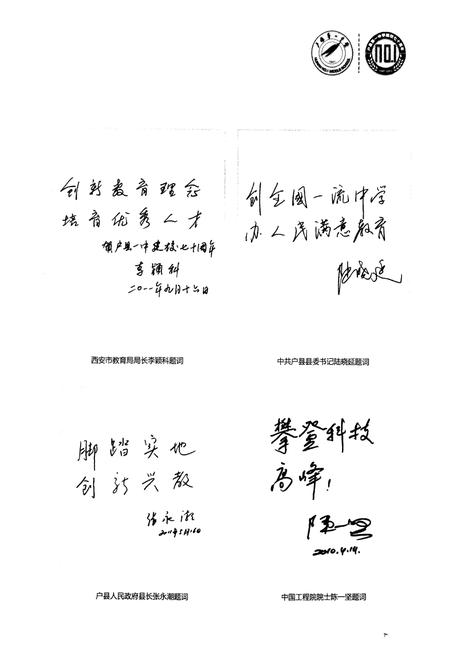 创新教育理念
培育优秀人才
贺户县一中建校七十周年
李颖科
二〇一一年九月十六日
西安市教育局局长李颖科题词
创全國一流中学
办人民满意教育
陆晓延
中共户县县委书记陆晓延题词
脚踏实地
创新兴教
张永潮
户县人民政府县长张永潮题词
攀登科技
高峰!
陈一坚
2010.4.14.
中国工程院院士陈一坚题词